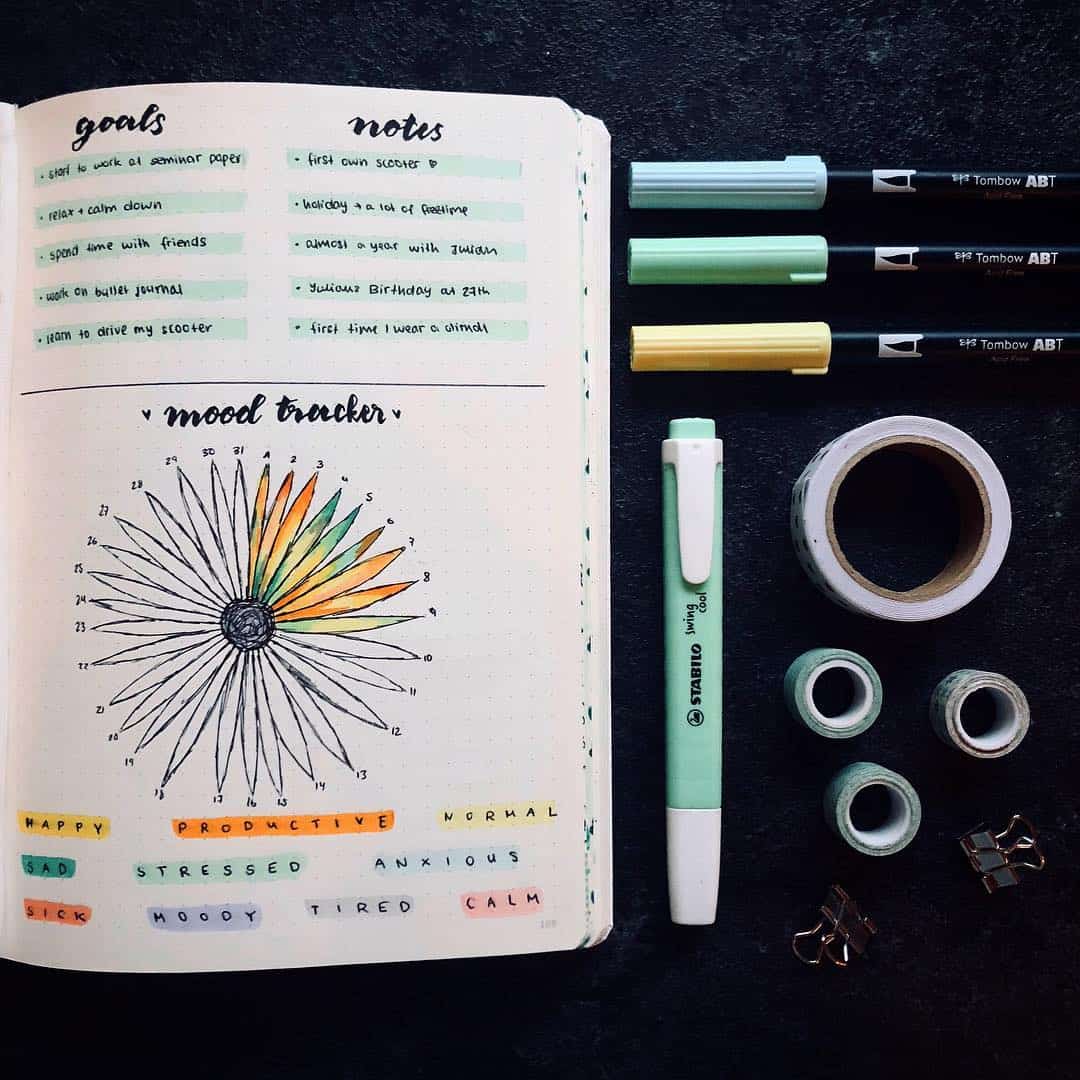 goals
• start to work at seminar paper
• relax + calm down
• spend time with friends
• work on bullet journal
• learn to drive my scooter
notes
• first own scooter ♡
• holiday + a lot of freetime
• almost a year with Julian
• Julians Birthday at 27th
• first time I wear a dirndl
♥ mood tracker ♥
1
2
3
4
5
6
7
8
9
10
11
12
13
14
15
16
17
18
19
20
21
22
23
24
25
26
27
28
29
30
31
HAPPY PRODUCTIVE NORMAL
SAD STRESSED ANXIOUS
SICK MOODY TIRED CALM
Tombow ABT
Acid Free
Tombow ABT
Acid Free
Tombow ABT
Acid Free
STABILO swing cool